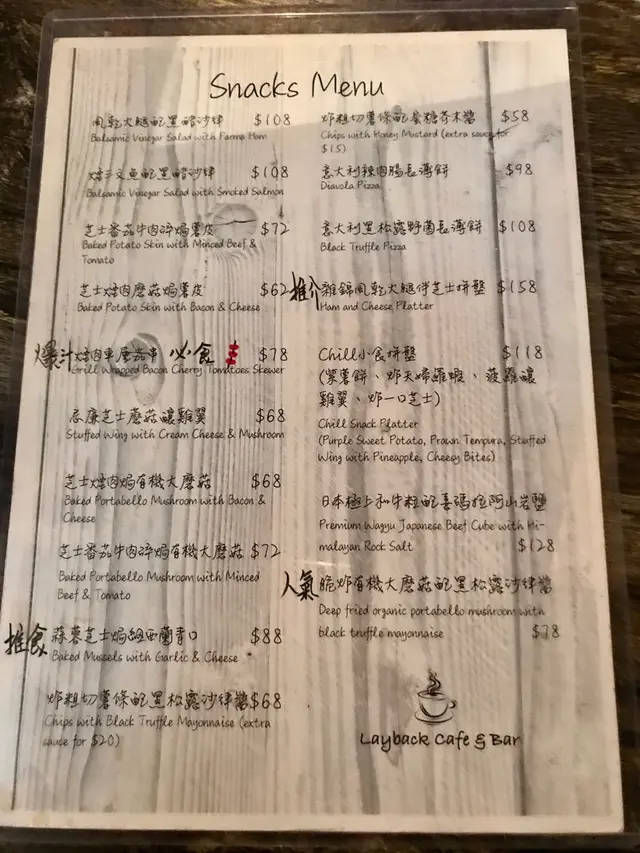 Snacks Menu
風乾火腿配黑醋沙律 $108
Balsamic Vinegar Salad with Parma Ham
煙三文魚配黑醋沙律 $108
Balsamic Vinegar Salad with Smoked Salmon
芝士番茄牛肉碎焗薯皮 $72
Baked Potato Skin with Minced Beef &
Tomato
芝士煙肉蘑菇焗薯皮 $62
Baked Potato Skin with Bacon & Cheese
爆汁 煙肉車厘茄串 必食 $78
Grill Wrapped Bacon Cherry Tomatoes Skewer
忌廉芝士蘑菇釀雞翼 $68
Stuffed Wing with Cream Cheese & Mushroom
芝士煙肉焗有機大蘑菇 $68
Baked Portabello Mushroom with Bacon &
Cheese
芝士番茄牛肉碎焗有機大蘑菇 $72
Baked Portabello Mushroom with Minced
Beef & Tomato
推食 蒜蓉芝士焗紐西蘭青口 $88
Baked Mussels with Garlic & Cheese
炸粗切薯條配黑松露沙律醬 $68
Chips with Black Truffle Mayonnaise (extra
sauce for $20)
炸粗切薯條配蜜糖芥末醬 $58
Chips with Honey Mustard (extra sauce for
$15)
意大利辣肉腸長薄餅 $98
Diavola Pizza
意大利黑松露野菌長薄餅 $108
Black Truffle Pizza
推介 雜錦風乾火腿伴芝士拼盤 $158
Ham and Cheese Platter
Chill小食拼盤 $118
(紫薯餅、炸天婦羅蝦、菠蘿釀
雞翼、炸一口芝士)
Chill Snack Platter
(Purple Sweet Potato, Prawn Tempura, Stuffed
Wing with Pineapple, Cheesy Bites)
日本極上和牛粒配喜瑪拉阿山岩鹽
Premium Wagyu Japanese Beef Cube with Hi-
malayan Rock Salt $128
人氣 脆炸有機大蘑菇配黑松露沙律醬
Deep fried organic portabello mushroom with
black truffle mayonnaise $78
Layback Cafe & Bar